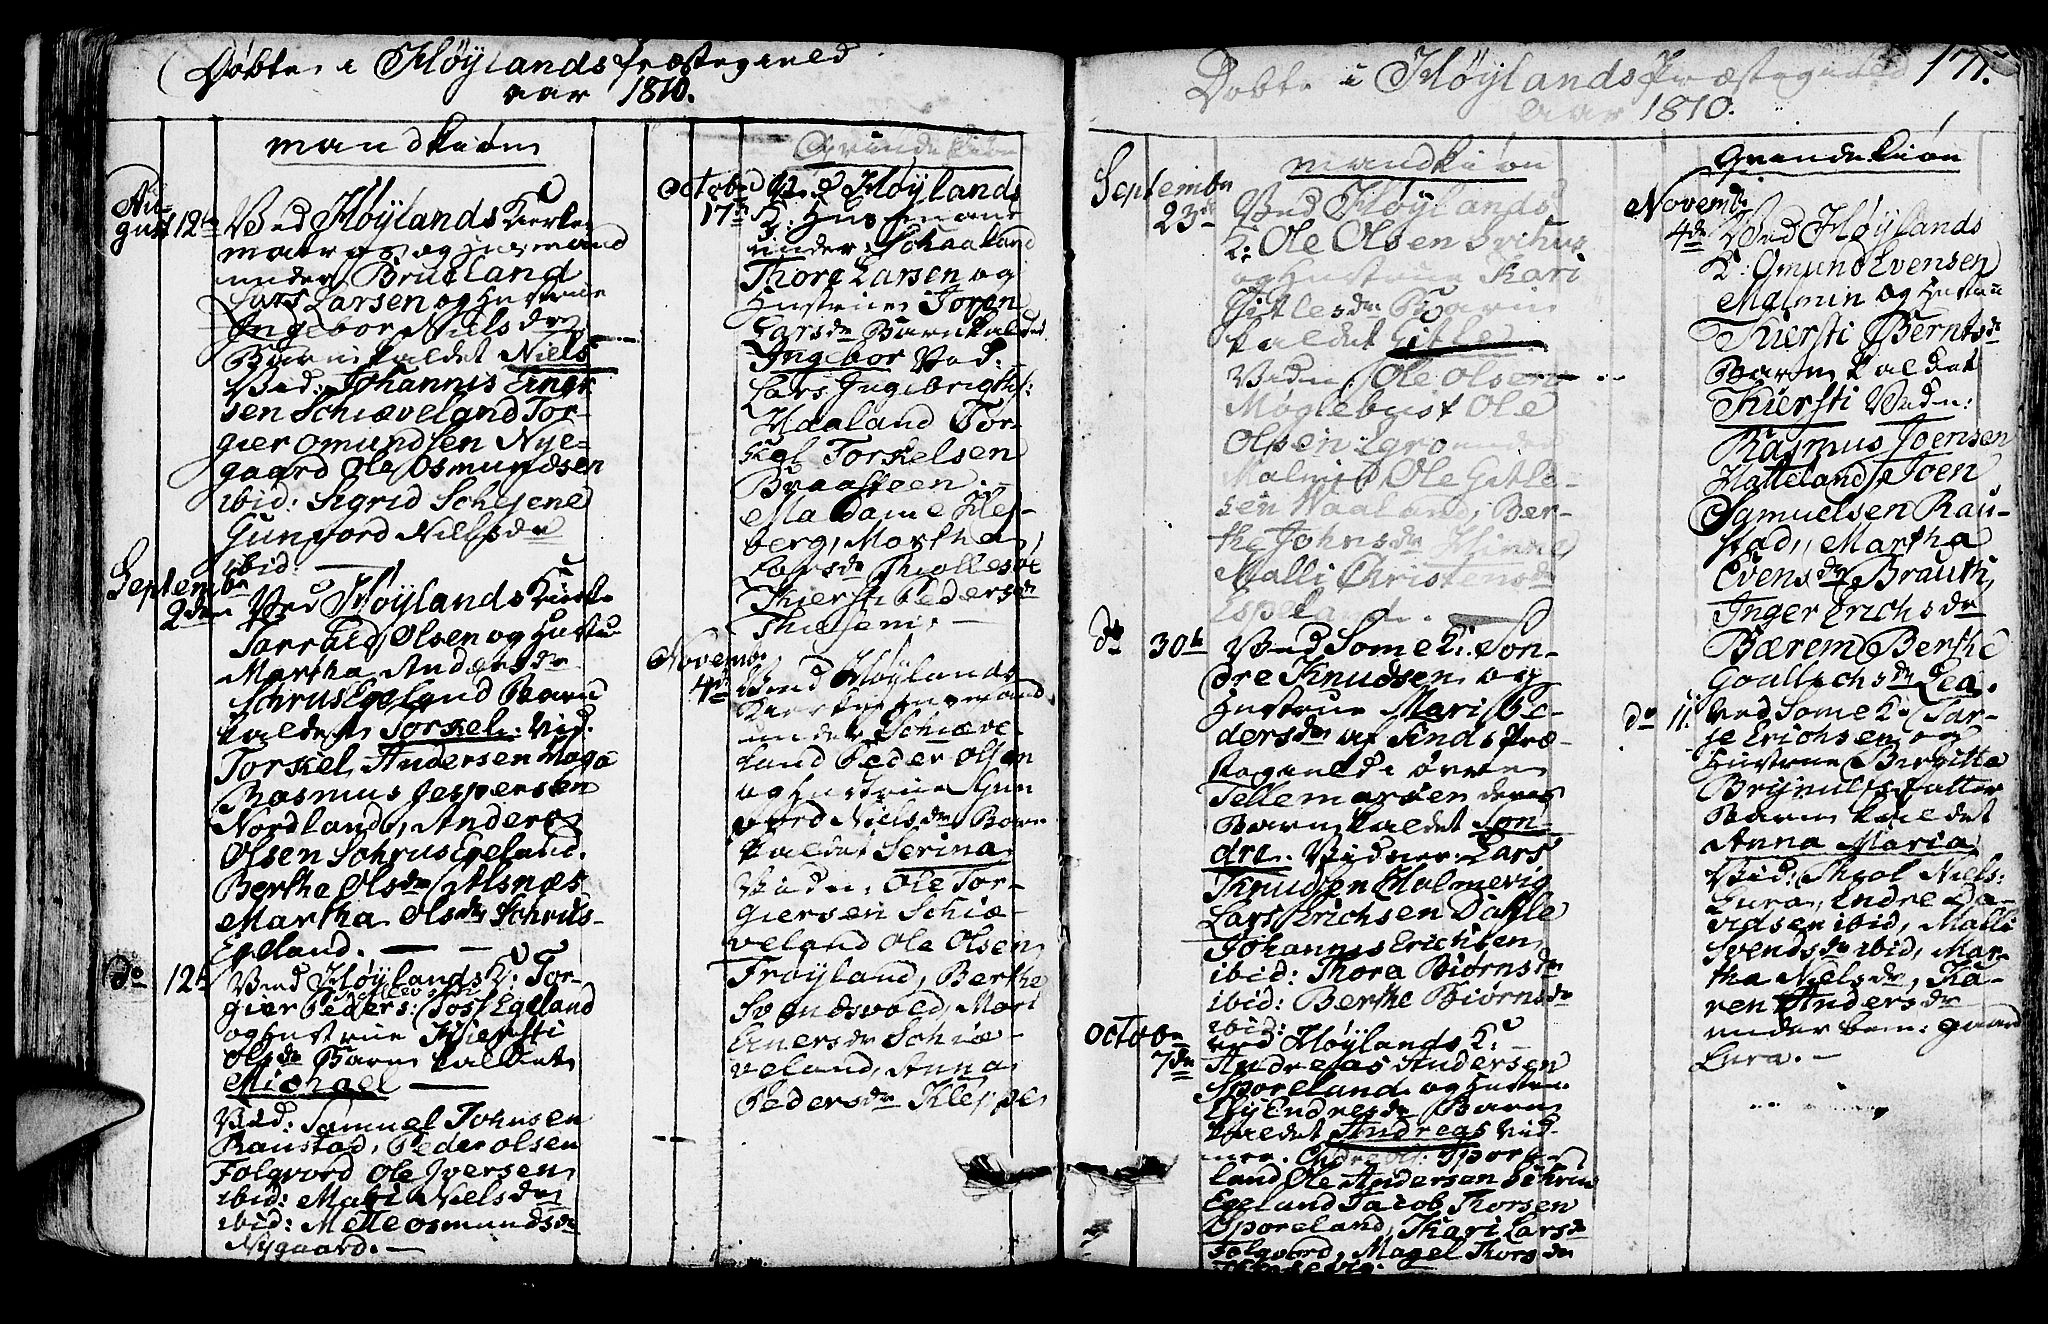 Døbte i Høylands Præstegield
aar 1810.
mandkiøn
August 12te Ved Høylands Kierke
matros og Husmand
under Brueland
Lars Larsen og Hustrue
Ingebor Nielsdr
Barn kaldet Niels
Vid: Johannis Einer
sen Schiæveland Tor-
gier Omundsen Nye-
gaard Ole Osmundsen
ibid: Sigrid
Gunvord Nielsdr
ibid:
Septembr
2den Ved Høylands Kierke
Olsen og Hustrue
Martha Andersdr
Schrus Egeland Barn
kaldet Torkel: Vid:
Torkel Andersen
Rasmus Jespersen
Nordland, Anders
Olsen Schrus Egeland.
Berthe Olsdr
Martha Olsdr Schrus-
Egeland.
do 12te Ved Høylands K: Tor-
gier Peders: Tosse Egeland
og Hustrue Kiersti
Olsdr Barn kaldet
Michael
Vid: Samuel Johnsen
Raustad, Peder Olsen
Folgvord Ole Iversen
ibid: Mari Nielsdr
ibid: Mette Osmundsdr
Nygaard.
Qvindekiøn
Octobr Ved Høylands
17de K: Husmand
under Schaaland
Thore Larsen og
Hustrue Joren
Larsdr Barn kaldet
Ingebor Vid:
Lars Ingebrigths:
Haaland Tor-
kel Torkelsen
Braasteen.
Madame Klep-
berg, Martha
Larsdr
Kiersti Pedersdr
Novembr
4de Ved Høylands
Kierke Husmand
under Schiæve-
land Peder Olsen
og Hustrue Gun
vord Nielsdr Barn
kaldet Serina
Vidn: Ole Tor-
giersen Schiæ-
veland Ole Olsen
Frøyland, Berthe
Svendsvold, Mari
Einersdr Schiæ-
veland, Anna
Pedersdr Kleppe
Døbte i Høylands Præstegield 171.
aar 1810.
mandkiøn
Septembr Ved Høylands
23de K: Ole Olsen
og Hustrue Kari
Gitlesdr Barn
kaldet Gitle
Vidn: Ole Olsen
Møglebust Ole
Olsen
Malmin Ole Gitle-
sen Vaaland, Ber-
the Johnsdr
Malli Christensdr
Espeland.
do 30te Ved Somme K: Son-
dre Knudsen og
Hustrue Mari Pe-
dersdr af Sinds Præ-
stegield i øvre
Tellemarken deres
Barn kaldet Son-
dre. Vidner: Lars
Knudsen Malmevig
Lars Erichsen Dahle
Johannis Erichsen
ibid: Thora Biørnsdr
ibid: Berthe Biørnsdr
ibid:
Octobr ved Høylands K:
7de Andreas Andersen
Sporeland og Hustru
Elj Endresdr Barn
kaldet Andreas Vid-
ner. Spore-
land Ole Andersen Schrus
Egeland Jacob Thorsen
Sporeland, Kari Larsdr
Folgvord, Magel Thorsdr
Qvindekiøn
Novembr
4de Ved Høylands
K: Omund Evensen
Malmin og Hustrue
Kiersti Berntsdr
Barn kaldet
Kiersti Vidn:
Rasmus Joensen
Hatteland, Joen
Samuelsen Rau-
stad, Martha
Evensdr Brauth,
Inger Erichsdr
Bærem Berthe
Goutlichsdr Lea.
do 11. Ved Somme K: Tar-
je Erichsen og
Hustrue Birgitta
Brynulfs datter
Barn kaldet
Anna Maria
Vid: Thiol Niels:
Lura, Endre Da-
vidsen ibid, Malli
Svendsdr ibid, Mar-
tha Nielsdr, Ka-
ren Andersdr
under bem: gaard
Lura.